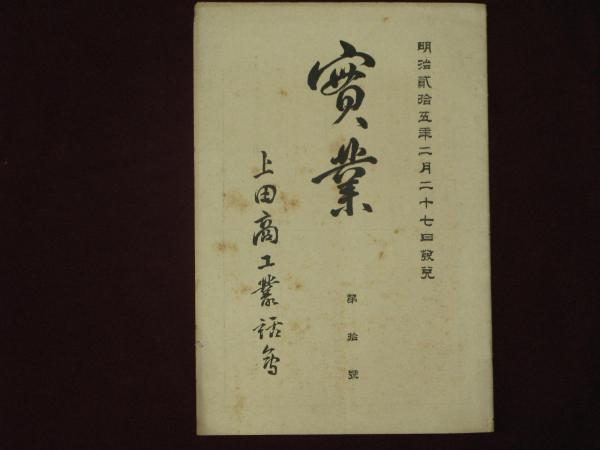 明治貳拾五年二月二十七日發兌
實業
第拾號
上田商工業叢話會